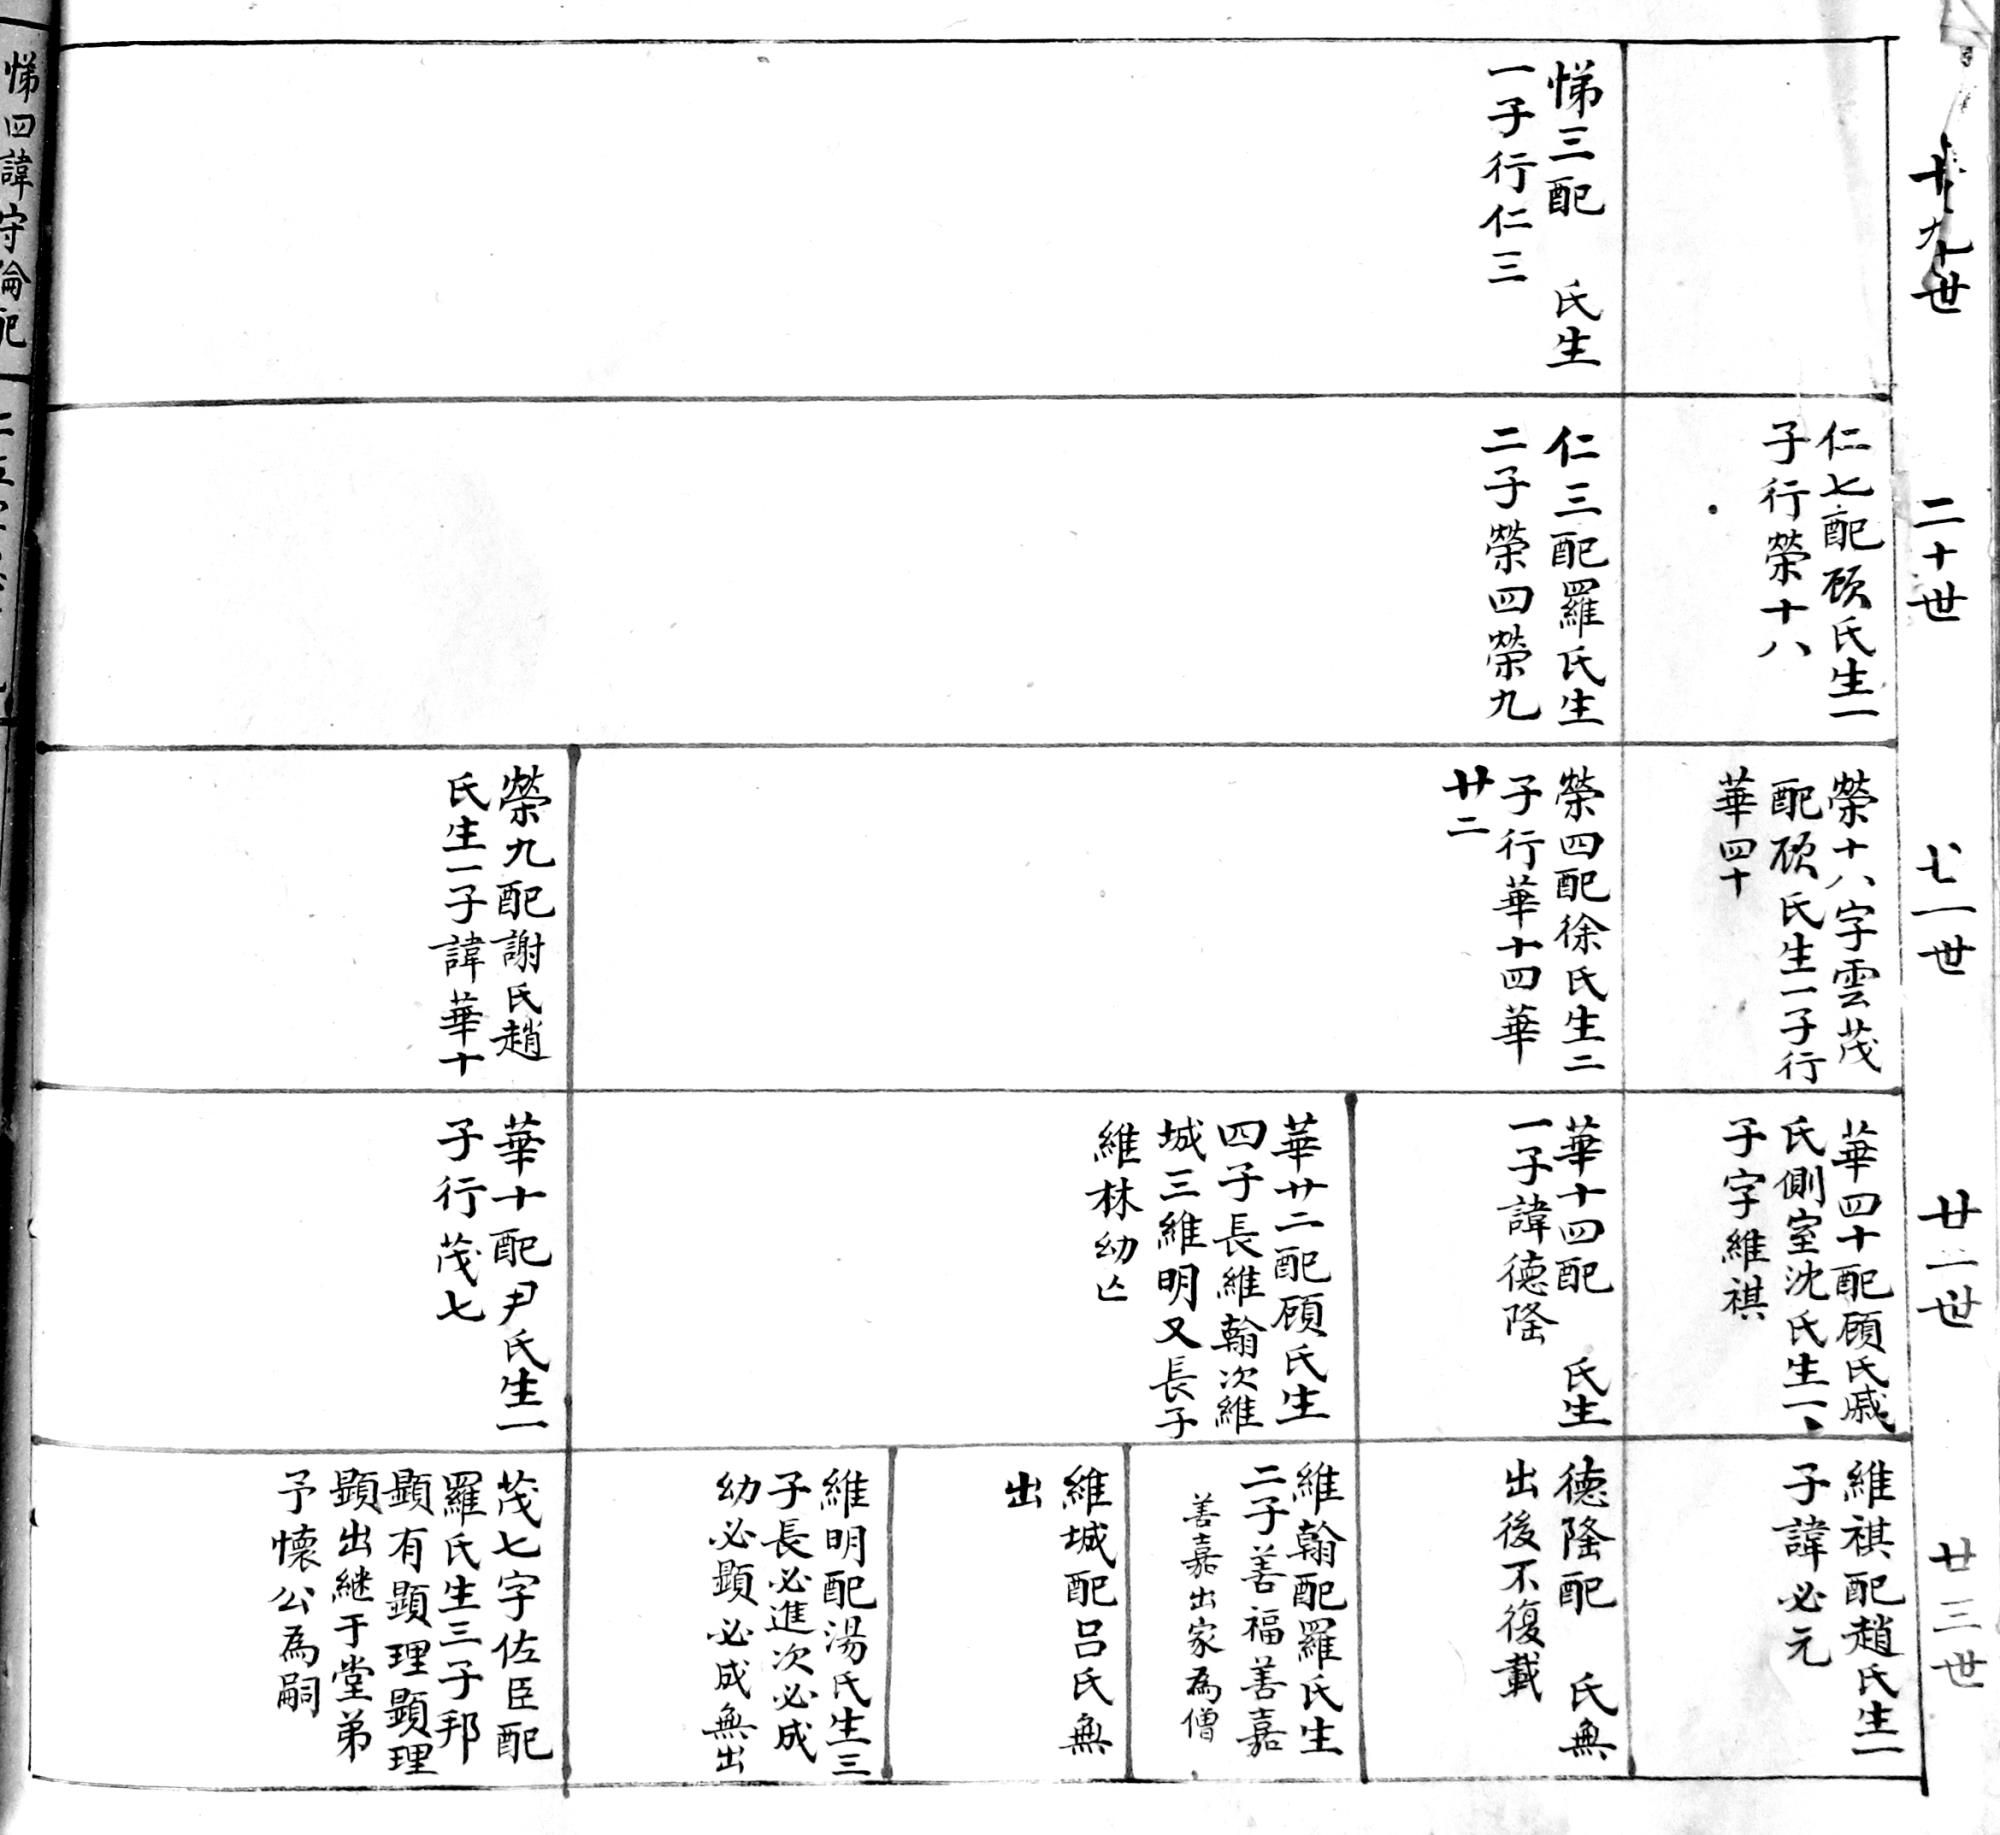 十九世
悌三配　氏生
一子行仁三
二十世
仁七配顾氏生一
子行榮十八
仁三配羅氏生
二子榮四榮九
廿一世
榮十八字雲茂
配顾氏生一子行
華四十
榮四配徐氏生二
子行華十四華
廿二
榮九配謝氏趙
氏生一子諱華十
廿二世
華四十配顧氏戚
氏側室沈氏生一
子字維祺
華十四配　氏生
一子諱德隆
華廿二配顧氏生
四子長維翰次維
城三維明又長子
維林幼亾
華十配尹氏生一
子行茂七
廿三世
維祺配趙氏生一
子諱必元
德隆配　氏無
出後不復載
維翰配羅氏生
二子善福善嘉
善嘉出家為僧
維城配呂氏無
出
維明配湯氏生三
子長必進次必成
幼必顯必成無出
茂七字佐臣配
羅氏生三子邦
顯有顯理顯理
顯出継于堂弟
予懷公為嗣
悌四諱守倫配